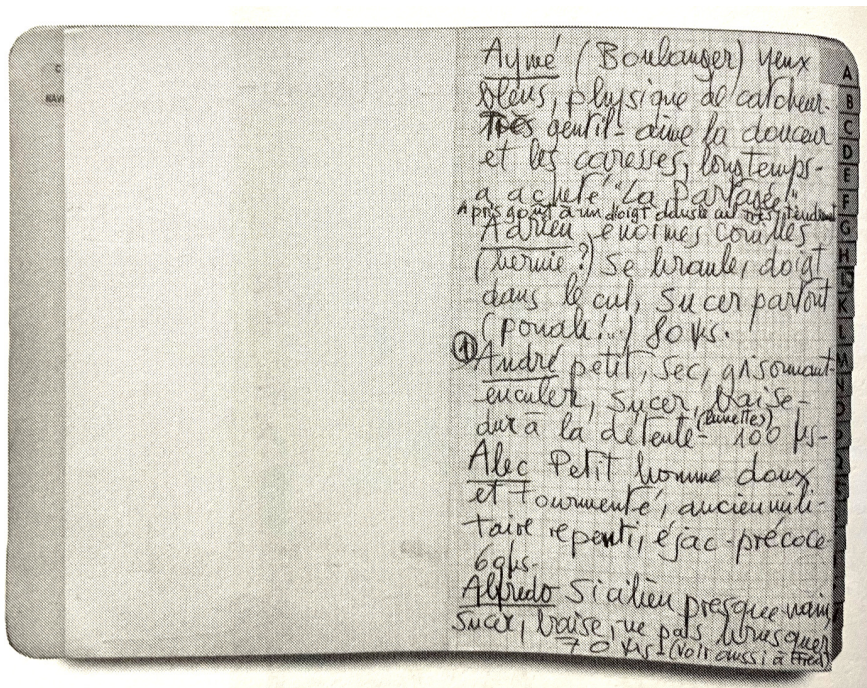 Aymé (Boulanger) yeux
bleus, physique de catcheur.
Très gentil - aime la douceur
et les caresses, longtemps -
a acheté "La Partagée"
A pris goût à un doigt dans le cul très, tendrement
Adrien, énormes couilles
(hernie ?) se branle, doigt
dans le cul, sucer partout
(pouah !...) 80 frs.
① André petit, sec, grisonnant -
enculer, sucer, baise -
dur à la détente - (lunettes) 100 frs -
Alec Petit homme doux
et tourmenté, ancien mili-
taire repenti, éjac-précoce -
60 frs -
Alfredo Sicilien presque nain,
sucer, baise, ne pas brusquer
70 frs - (voir aussi à
A
B
C
D
E
F
G
H
K
L
M
N
O